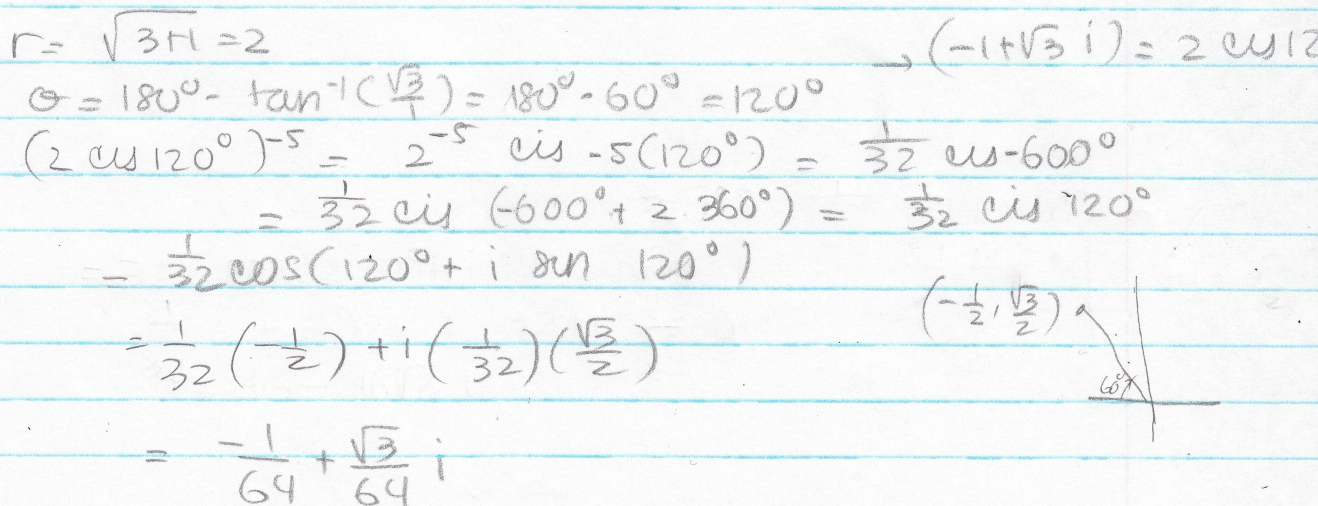 r = √(3+1) = 2
→ (-1+√3 i) = 2 cis 12
θ = 180° - tan⁻¹(√3/1) = 180° - 60° = 120°
(2 cis 120°)⁻⁵ = 2⁻⁵ cis -5(120°) = 1/32 cis -600°
= 1/32 cis (-600° + 2 360°) = 1/32 cis 120°
= 1/32 cos(120° + i sin 120°)
(-1/2, √3/2)
= 1/32 (-1/2) + i (1/32)(√3/2)
60°
= -1/64 + √3/64 i